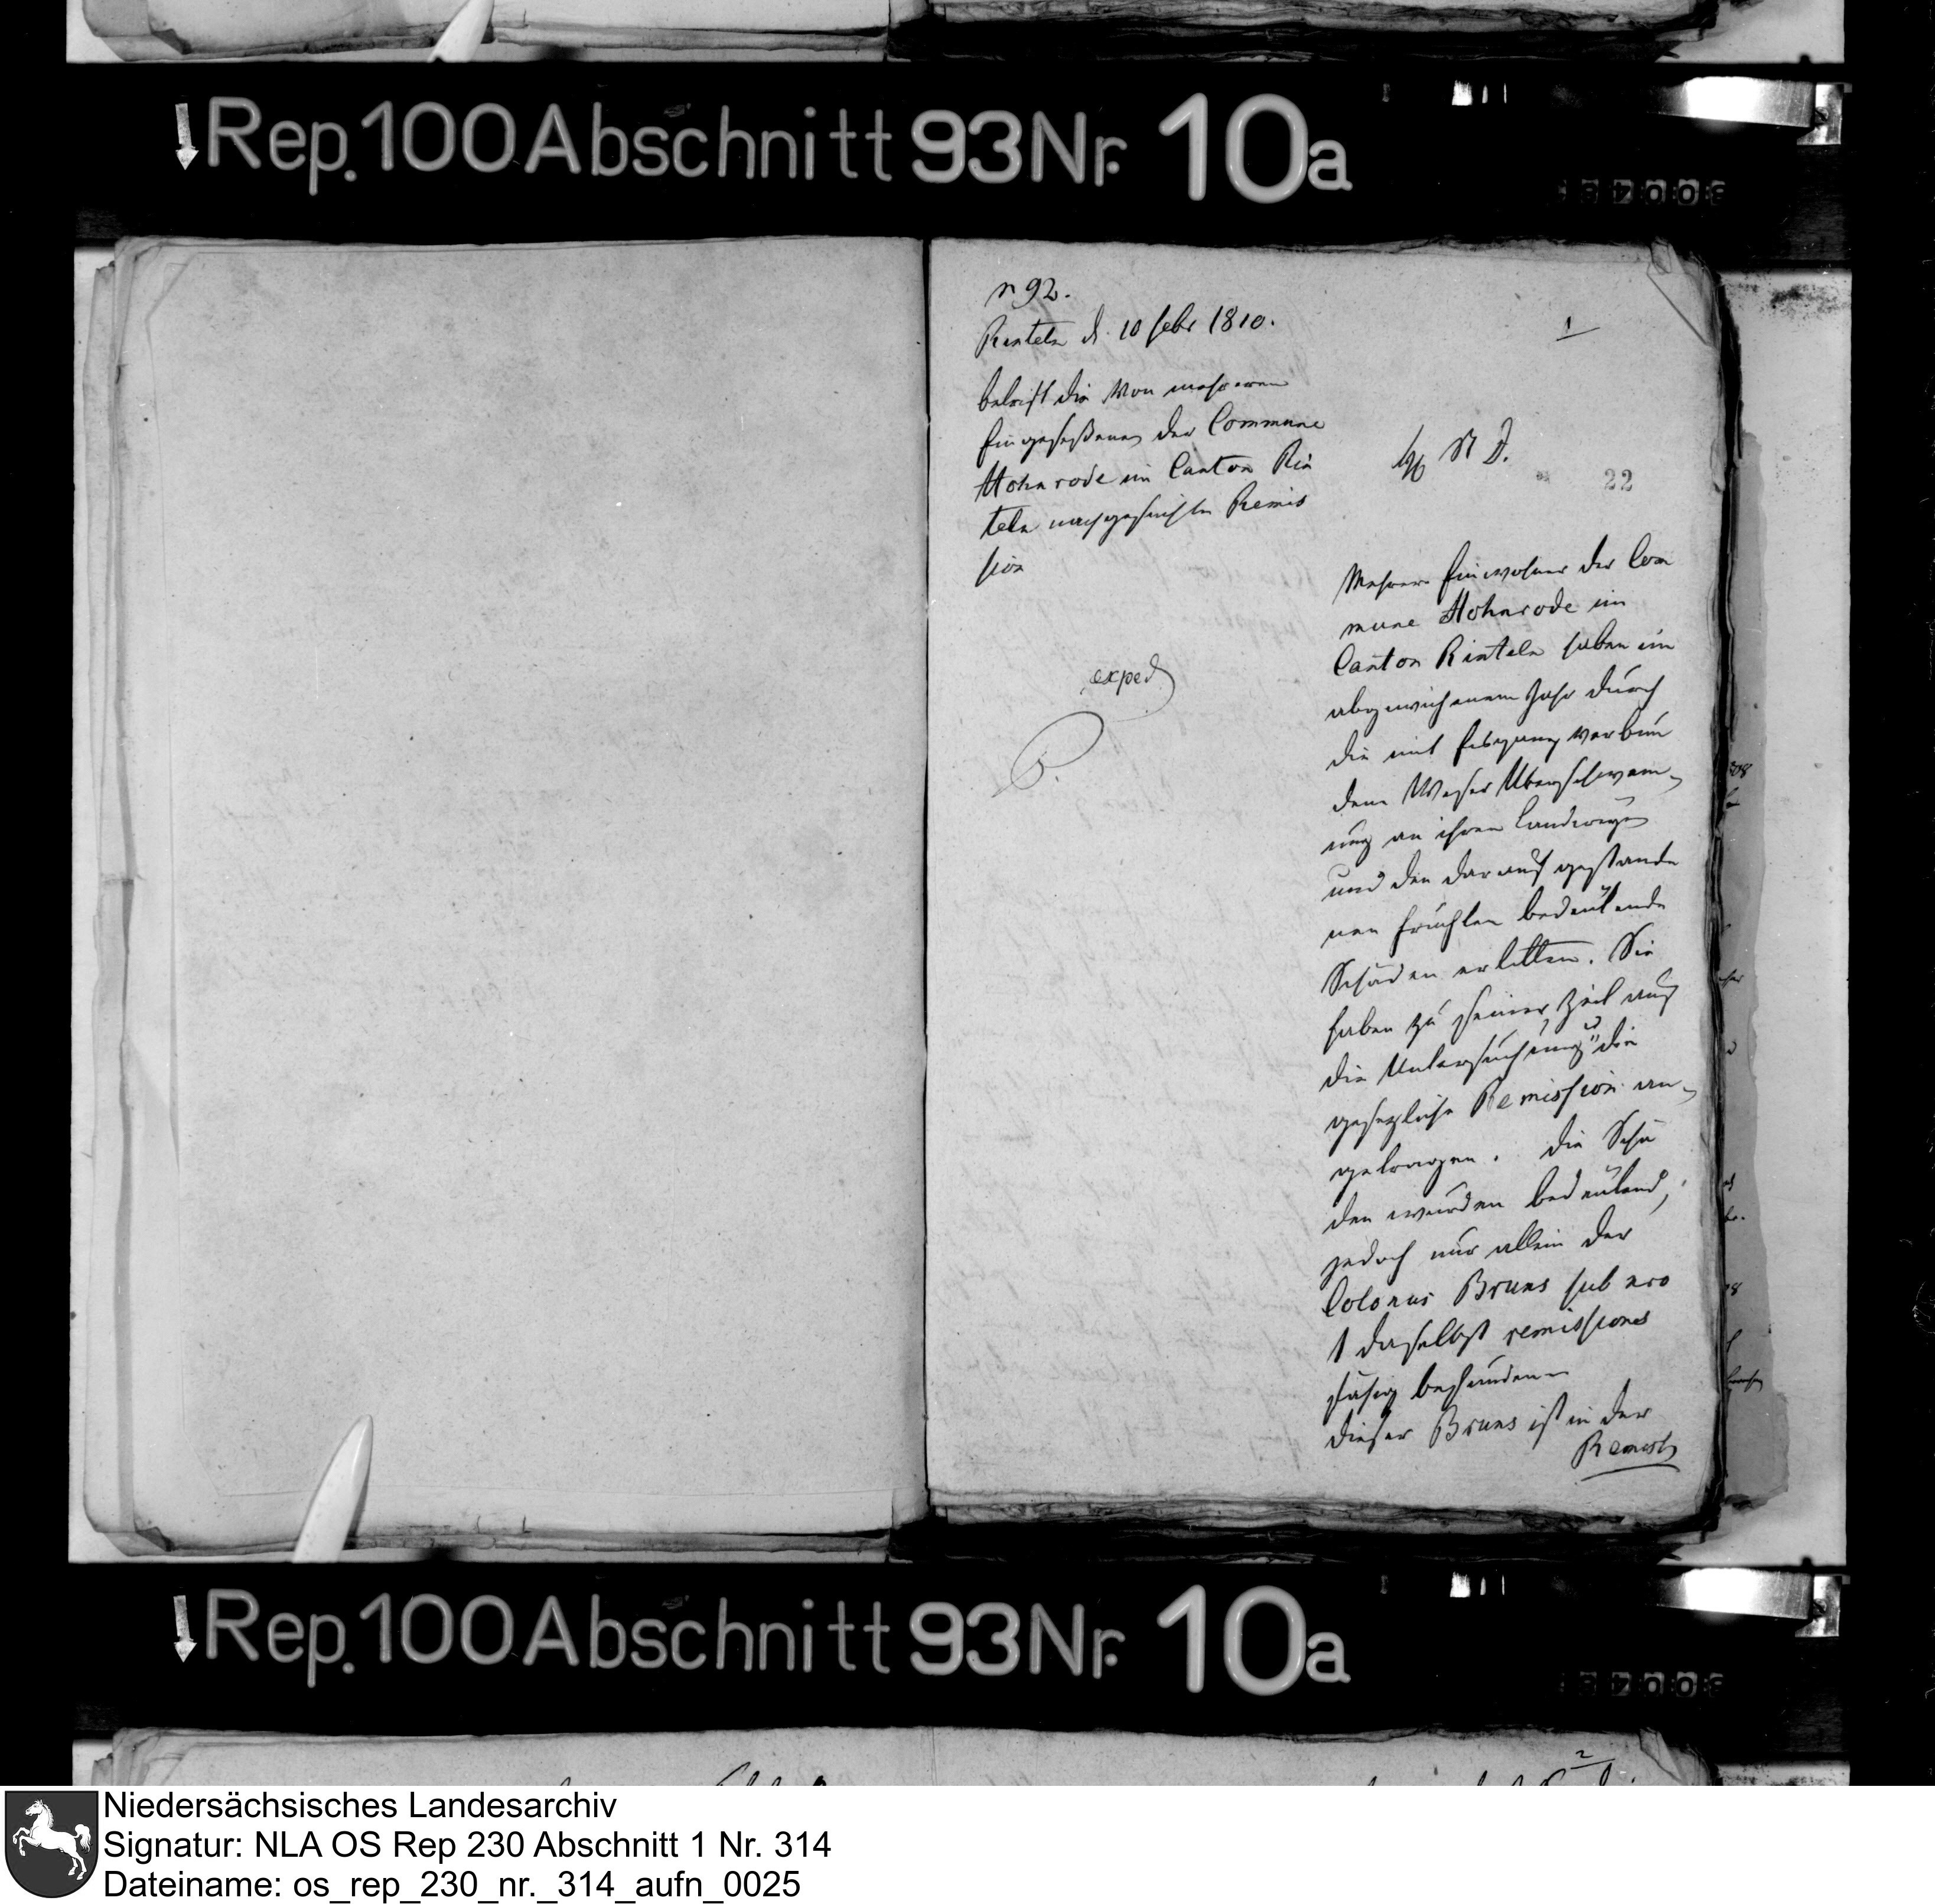 Rep. 100 Abschnitt 93 Nr. 10a
n 92.
Rinteln d. 10 febr 1810.
1
betrift die von mehreren
Eingeseßenen der Commune
Hohnrode im Canton Rin
teln nachgesuchte Remis
sion
exped
22
Mehrere Einwohner der Com
mune Hohnrode im
Canton Rinteln haben im
abgewichenen Jahr durch
die mit Eisgang verbun
dene Weser Überschwem¬
ung an ihren Ländereyen
und den darauf gestande
nen Früchten bedeutende
Schäden erlitten. Sie
haben zu seiner Zeit auf
die Untersuchung u die
gesezliche Remission an¬
getragen. Die Schä
den wurden bedeutend,
jedoch nur allein der
Colonus Bruns sub nro
1 daselbst remissions
fähig befunden
Dieser Bruns ist in der
Rep. 100 Abschnitt 93 Nr. 10a
2
Niedersächsisches Landesarchiv
Signatur: NLA OS Rep 230 Abschnitt 1 Nr. 314
Dateiname: os_rep_230_nr._314_aufn_0025